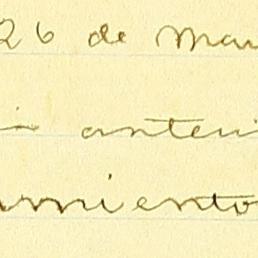 26 de Mar
i anteri
umiento